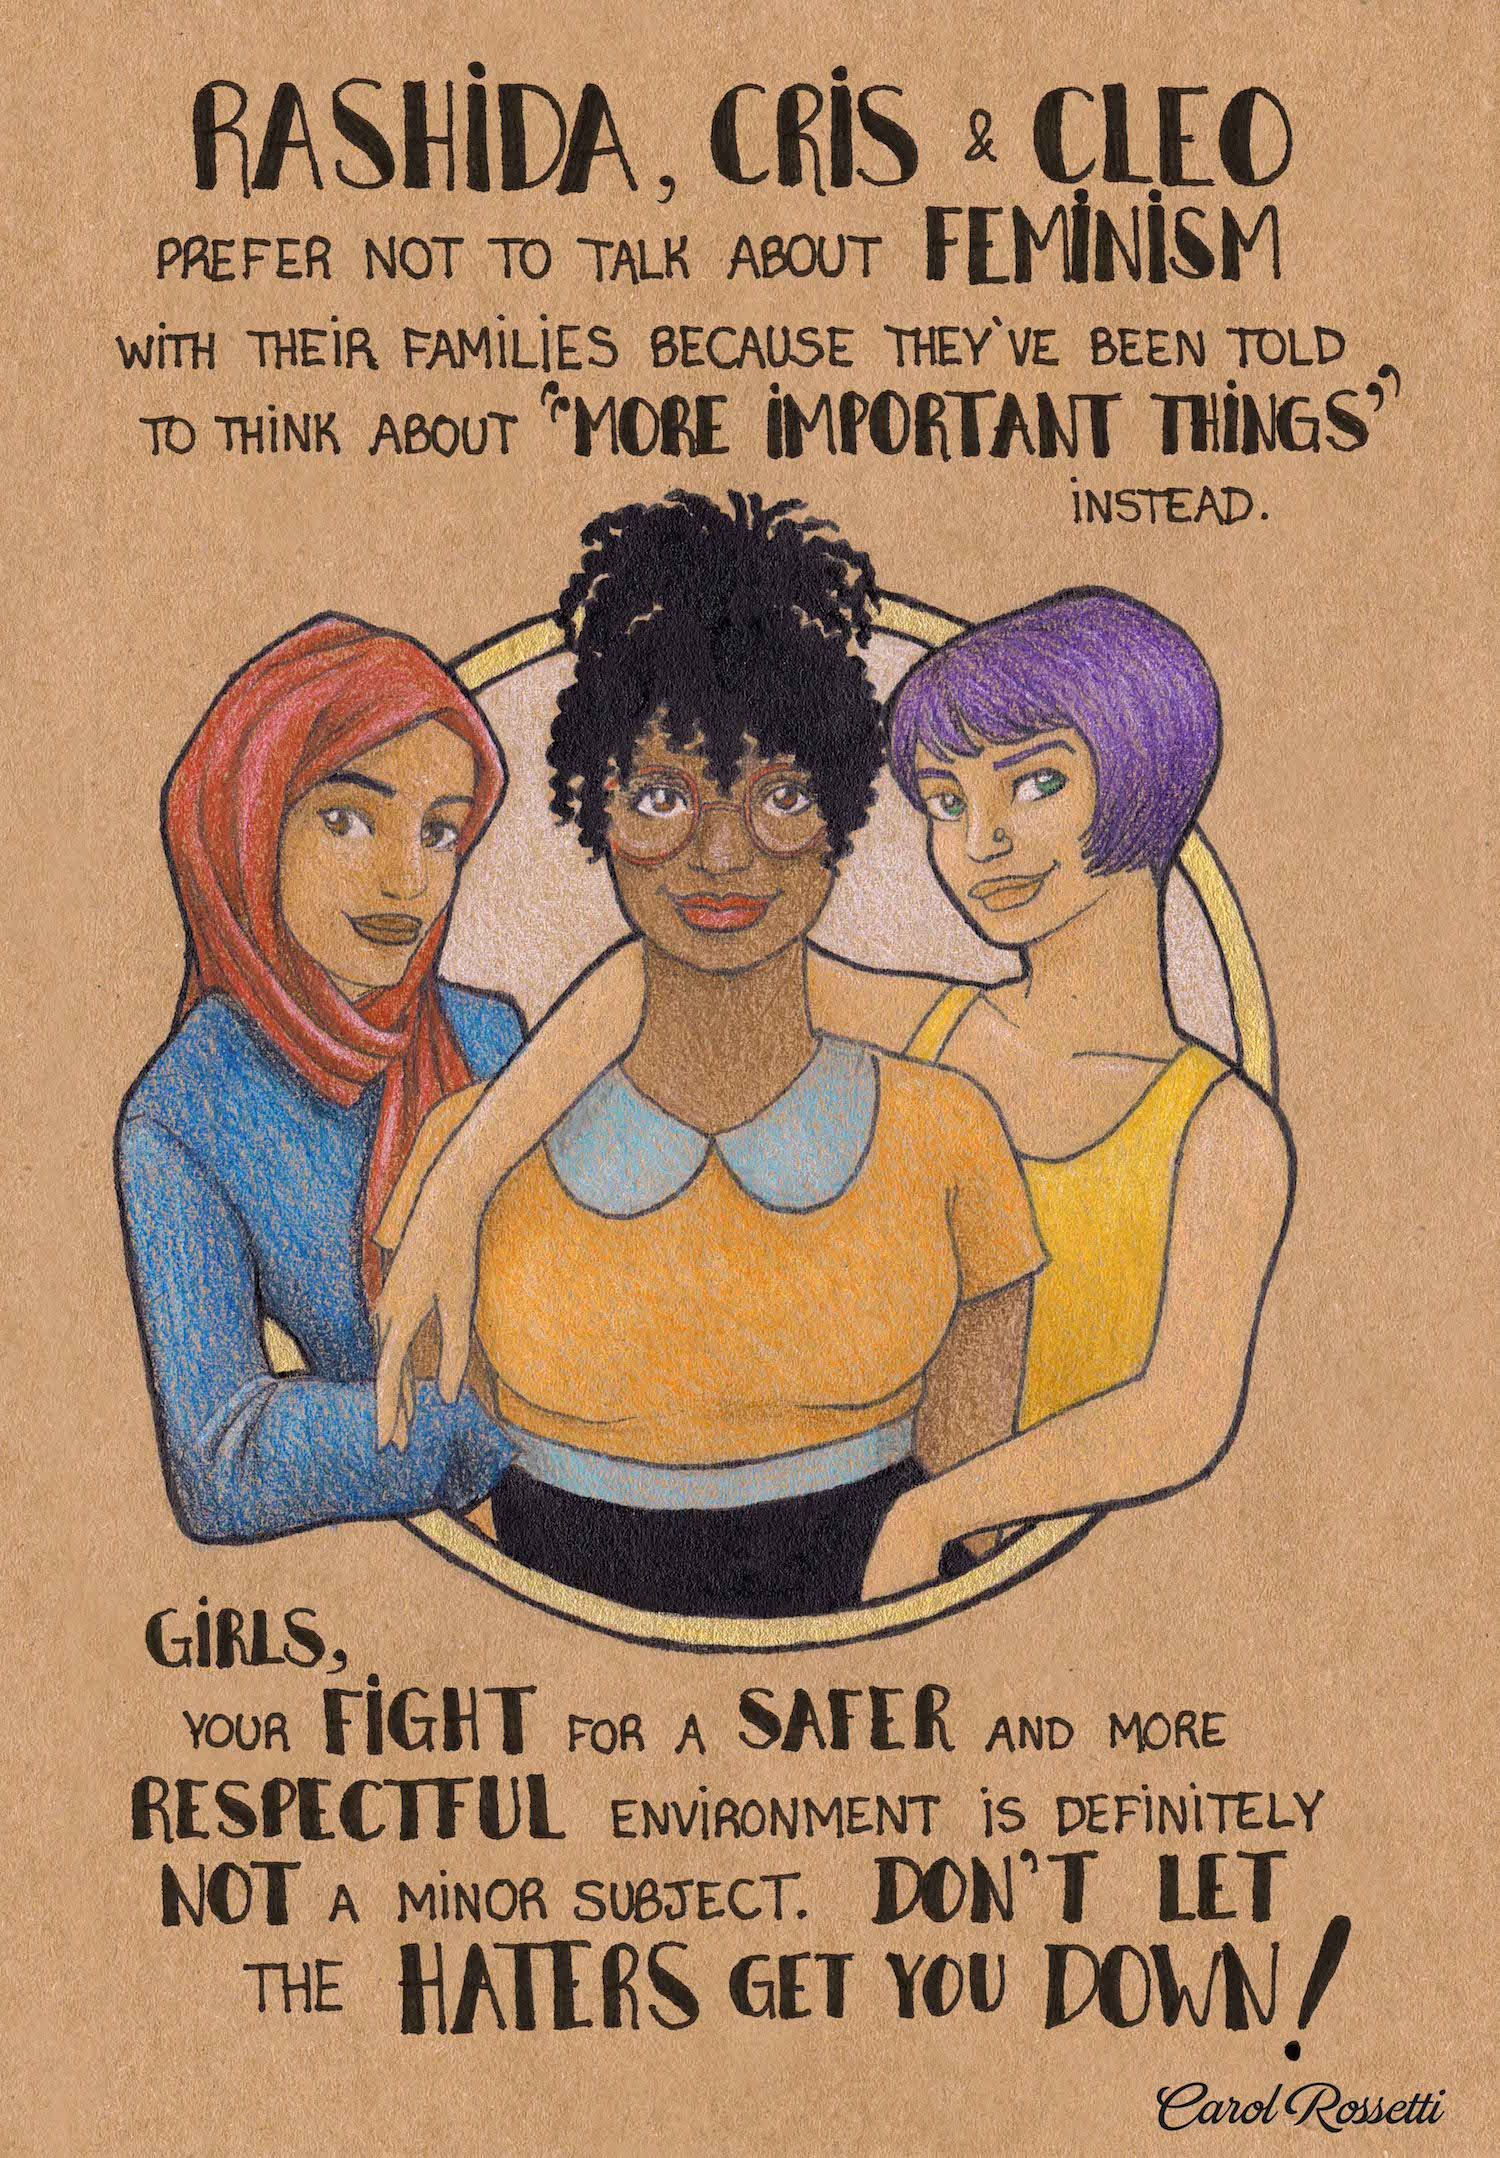 RASHIDA, CRIS & CLEO
PREFER NOT TO TALK ABOUT FEMINISM
WITH THEIR FAMILIES BECAUSE THEY`VE BEEN TOLD
TO THINK ABOUT "MORE IMPORTANT THINGS"
INSTEAD.
GIRLS,
YOUR FIGHT FOR A SAFER AND MORE
RESPECTFUL ENVIRONMENT IS DEFINITELY
NOT A MINOR SUBJECT. DON'T LET
THE HATERS GET YOU DOWN!
Carol Rossetti